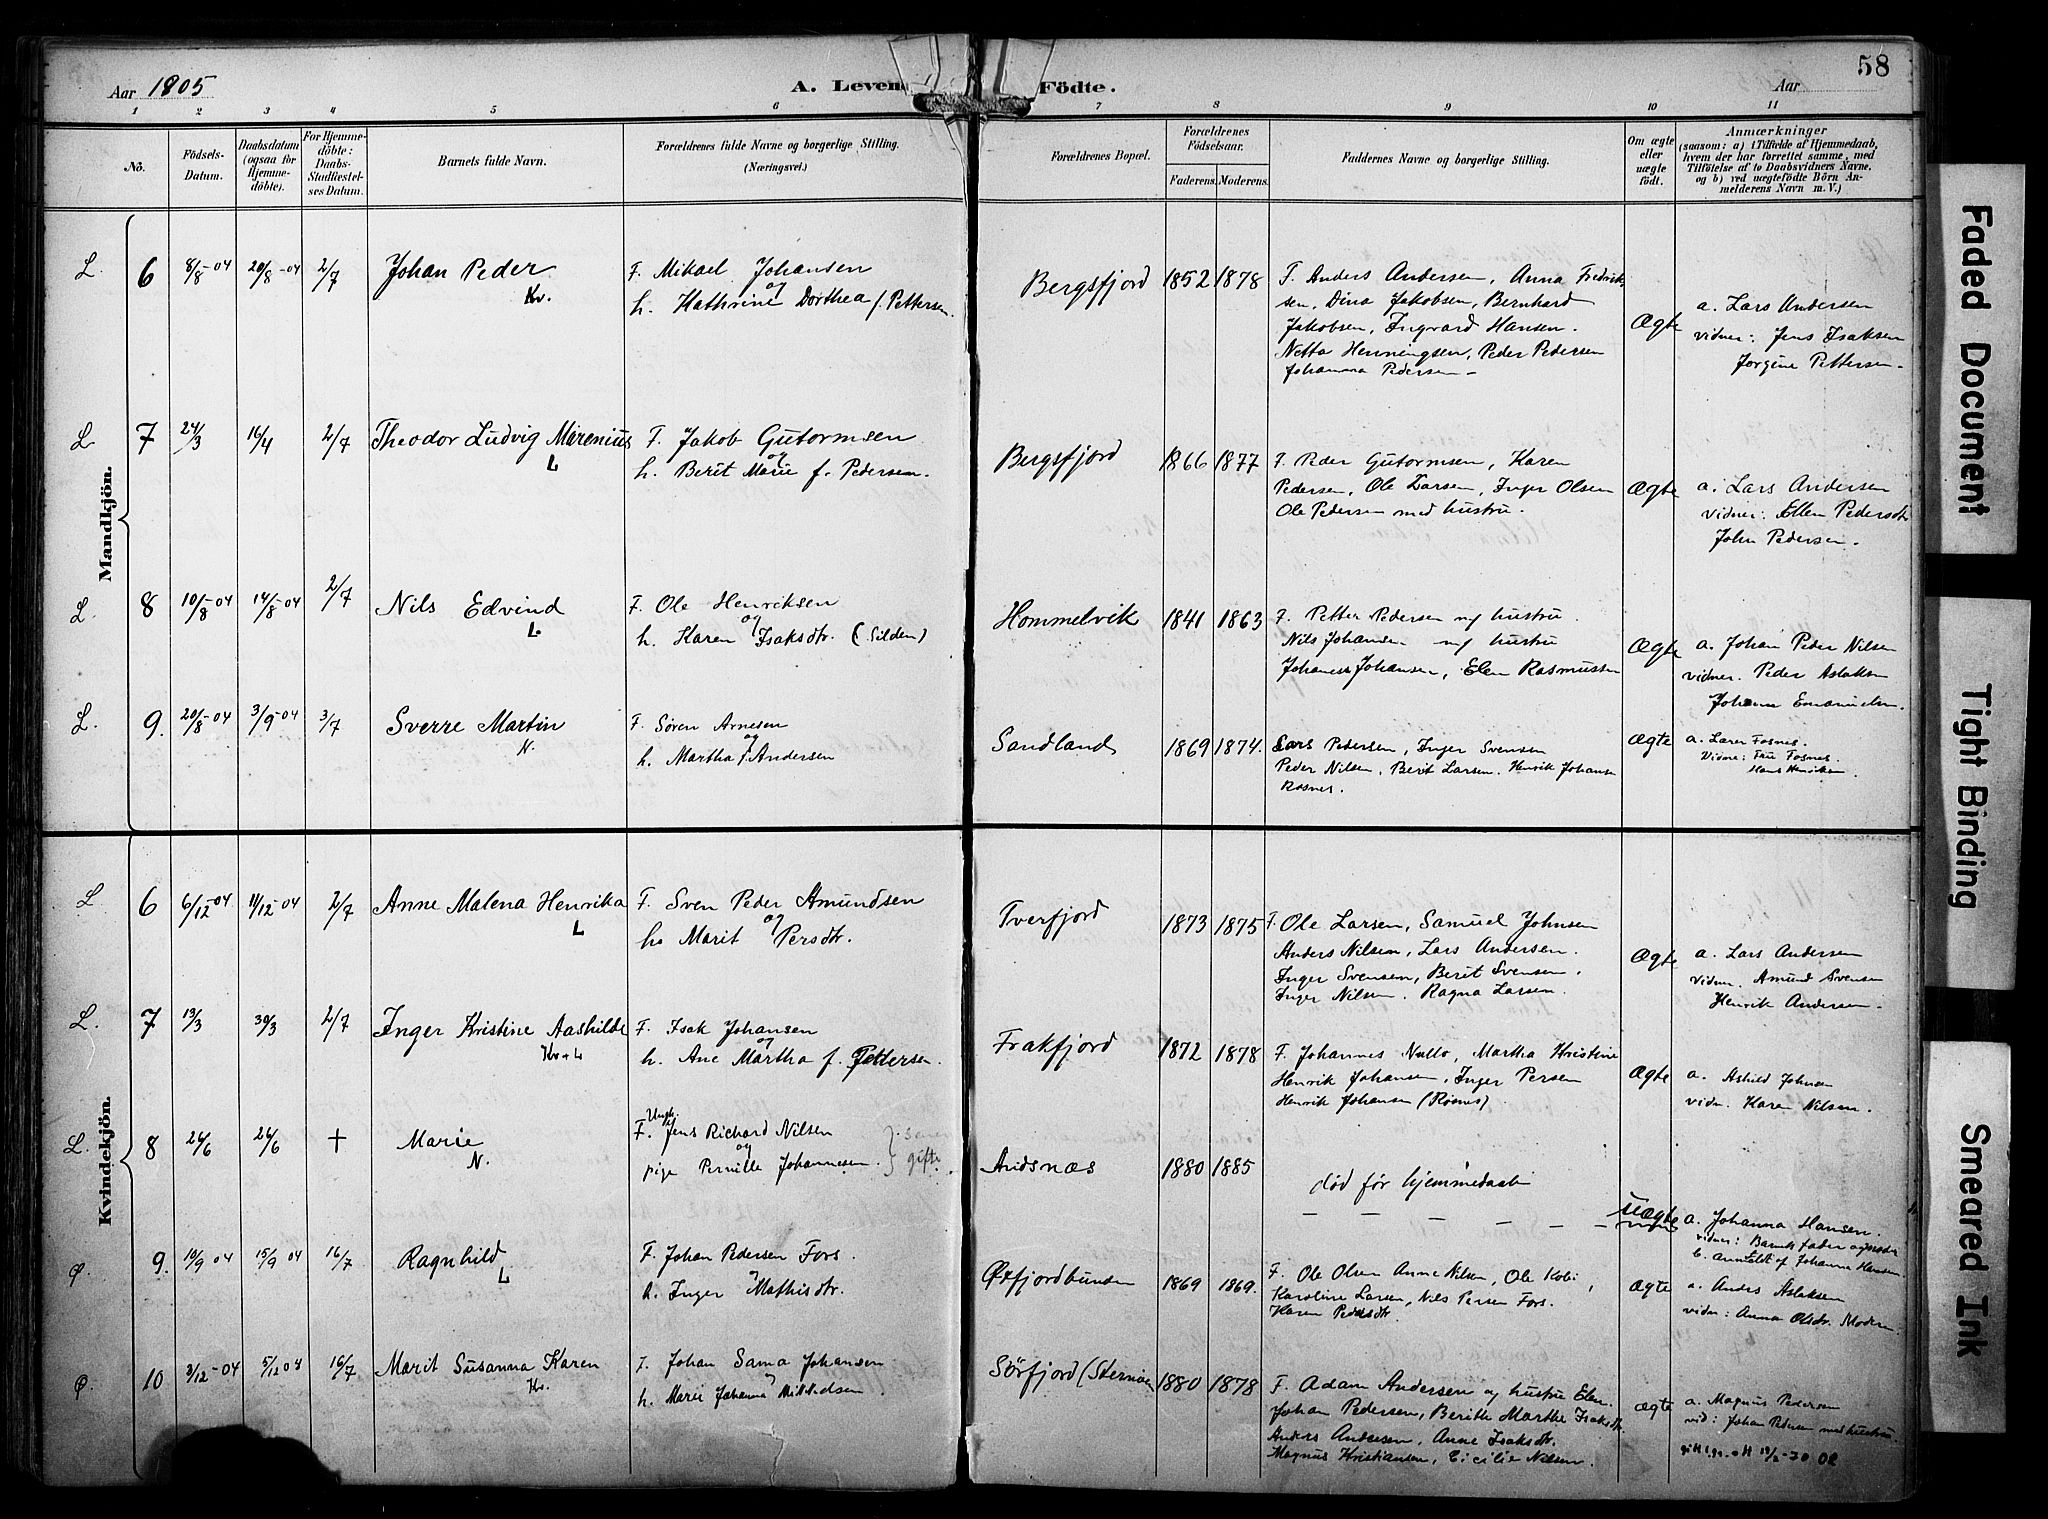 58
Aar 1905
A. Levende Födte.
Aar
1 2 3 4 5 6 7 8 9 10 11
Nö.
Födsels-Datum.
Daabsdatum (ogsaa for Hjemmedöbte).
For Hjemmedöbte: Daabs-Stadfæstelses Datum.
Barnets fulde Navn.
Forældrenes fulde Navne og borgerlige Stilling. (Næringsvei.)
Forældrenes Bopæl.
Forældrenes Födselsaar.
Faderens. Moderens.
Faddernes Navne og borgerlige Stilling.
Om ægte eller uægte födt.
Anmærkninger (saasom: a) i Tilfælde af Hjemmedaab, hvem der har forrettet samme, med Tilföielse af to Daabsvidners Navne, og b) ved uægtefödte Börn Anmelderens Navn m. V.)
Mandkjön.
L. 6 8/8-04 20/8-04 2/7 Johan Peder
Kv.
F. Mikael Johansen
og
h. Kathrine Dorthea f. Pettersen.
Bergsfjord 1852 1878
F. Anders Andersen, Anna Fredrik
sen, Dina Jakobsen, Bernhard
Jakobsen, Ingvard Hansen.
Netta Henningsen, Peder Pedersen
Johanna Pedersen -
Ægte
a. Lars Andersen
vidner: Jens Isaksen
Jorgine Pettersen.
L 7 24/3 16/4 2/7 Theodor Ludvig Marenius
L
F. Jakob Gutormsen
og
h. Berit Marie f. Pedersen.
Bergsfjord 1866 1877
F. Peder Gutormsen, Karen
Pedersen, Ole Larsen, Inger Olsen
Ole Pedersen med hustru.
Ægte
a. Lars Andersen
vidner: Ellen Pedersdtr
John Pedersen.
L. 8 10/8-04 14/8-04 2/7 Nils Edvind
L.
F. Ole Henriksen
og
h. Karen Isaksdtr. (Silden)
Hommelvik 1841 1863
F. Petter Pedersen m/ hustru.
Nils Johansen m/ hustru
Johannes Johansen, Elen Rasmussen
Ægte
a. Johan Peder Nilsen
vidner. Peder Aslaksen
L. 9. 20/8-04 3/9-04 3/7 Sverre Martin
N.
F. Sören Arnesen
og
h. Martha f. Andersen
Sandland 1869 1874.
Lars Pedersen, Inger Svensen
Peder Nilsen, Berit Larsen. Henrik Johanse
Rosnes.
Ægte
a. Lærer Fosnes.
Vidne: Fru Fosnes.
Hans Henriksen.
Kvindekjön.
L 6 6/12-04 11/12-04 2/7 Anne Malena Henrika
L
F. Sven Peder Amundsen
og
h. Marit Persdtr.
Tverfjord 1873 1875
F. Ole Larsen, Samuel Johnsen
Anders Nilsen, Lars Andersen.
Inger Svensen, Berit Svensen,
Inger Nilsen. Ragna Larsen.
Ægte
a. Lars Andersen
vidner. Amund Svensen
Henrik Andersen.
L. 7 13/3 30/3 2/7 Inger Kristine Aashilde
Kv + L
F. Isak Johansen
og
h. Ane Martha f. Pettersen.
Frakfjord 1872 1878
F. Johannes Nullo, Martha Kristine
Henrik Johansen, Inger Persen
Henrik Johansen (Rösnes).
Ægte
a. Ashild Johnsen
vidn. Karen Nilsen.
L. 8 26/6 26/6 + Marie
N.
Ungk.
F. Jens Richard Nilsen
og
pige Pernille Johannesen.
gifte
Andsnæs 1880 1885
død før hjemmedaab
– – – – – –
Uægte
a. Johanna Hansen.
vidner: Barnets fader og moder
b. Anmeldt af Johanna Hansen.
Ø. 9. 10/9 04 15/9 04 16/7 Ragnhild
L
F. Johan Pedersen Fors.
h. Inger Mathisdtr.
Øxfjordbunden 1869 1869.
F. Ole Olsen Anne Nilsen, Ole Kobi,
Karoline Larsen, Nils Persen Fors.
Karen Pedersdtr.
Ægte
a. Anders Aslaksen
vidn: Anna Olsdtr. Moderen.
Ø. 10 3/12-04 5/12 04 16/7 Marit Susanna Karen
Kv.
F. Johan Sama Johansen
h. Marie Johanna Mikkelsen
Sörfjord (Sternöen) 1880 1878
F. Adam Andersen og hustru Elen.
Johan Pedersen, Berith Marthe Isaksdtr.
Anders Andersen, Anne Isaksdtr.
Magnus Kristiansen, Cicilie Nilsen.
Ægte
a. Magnus Pedersen
vid: Johan Pedersen med hustru
Faded Document
Tight Binding
Smeared Ink